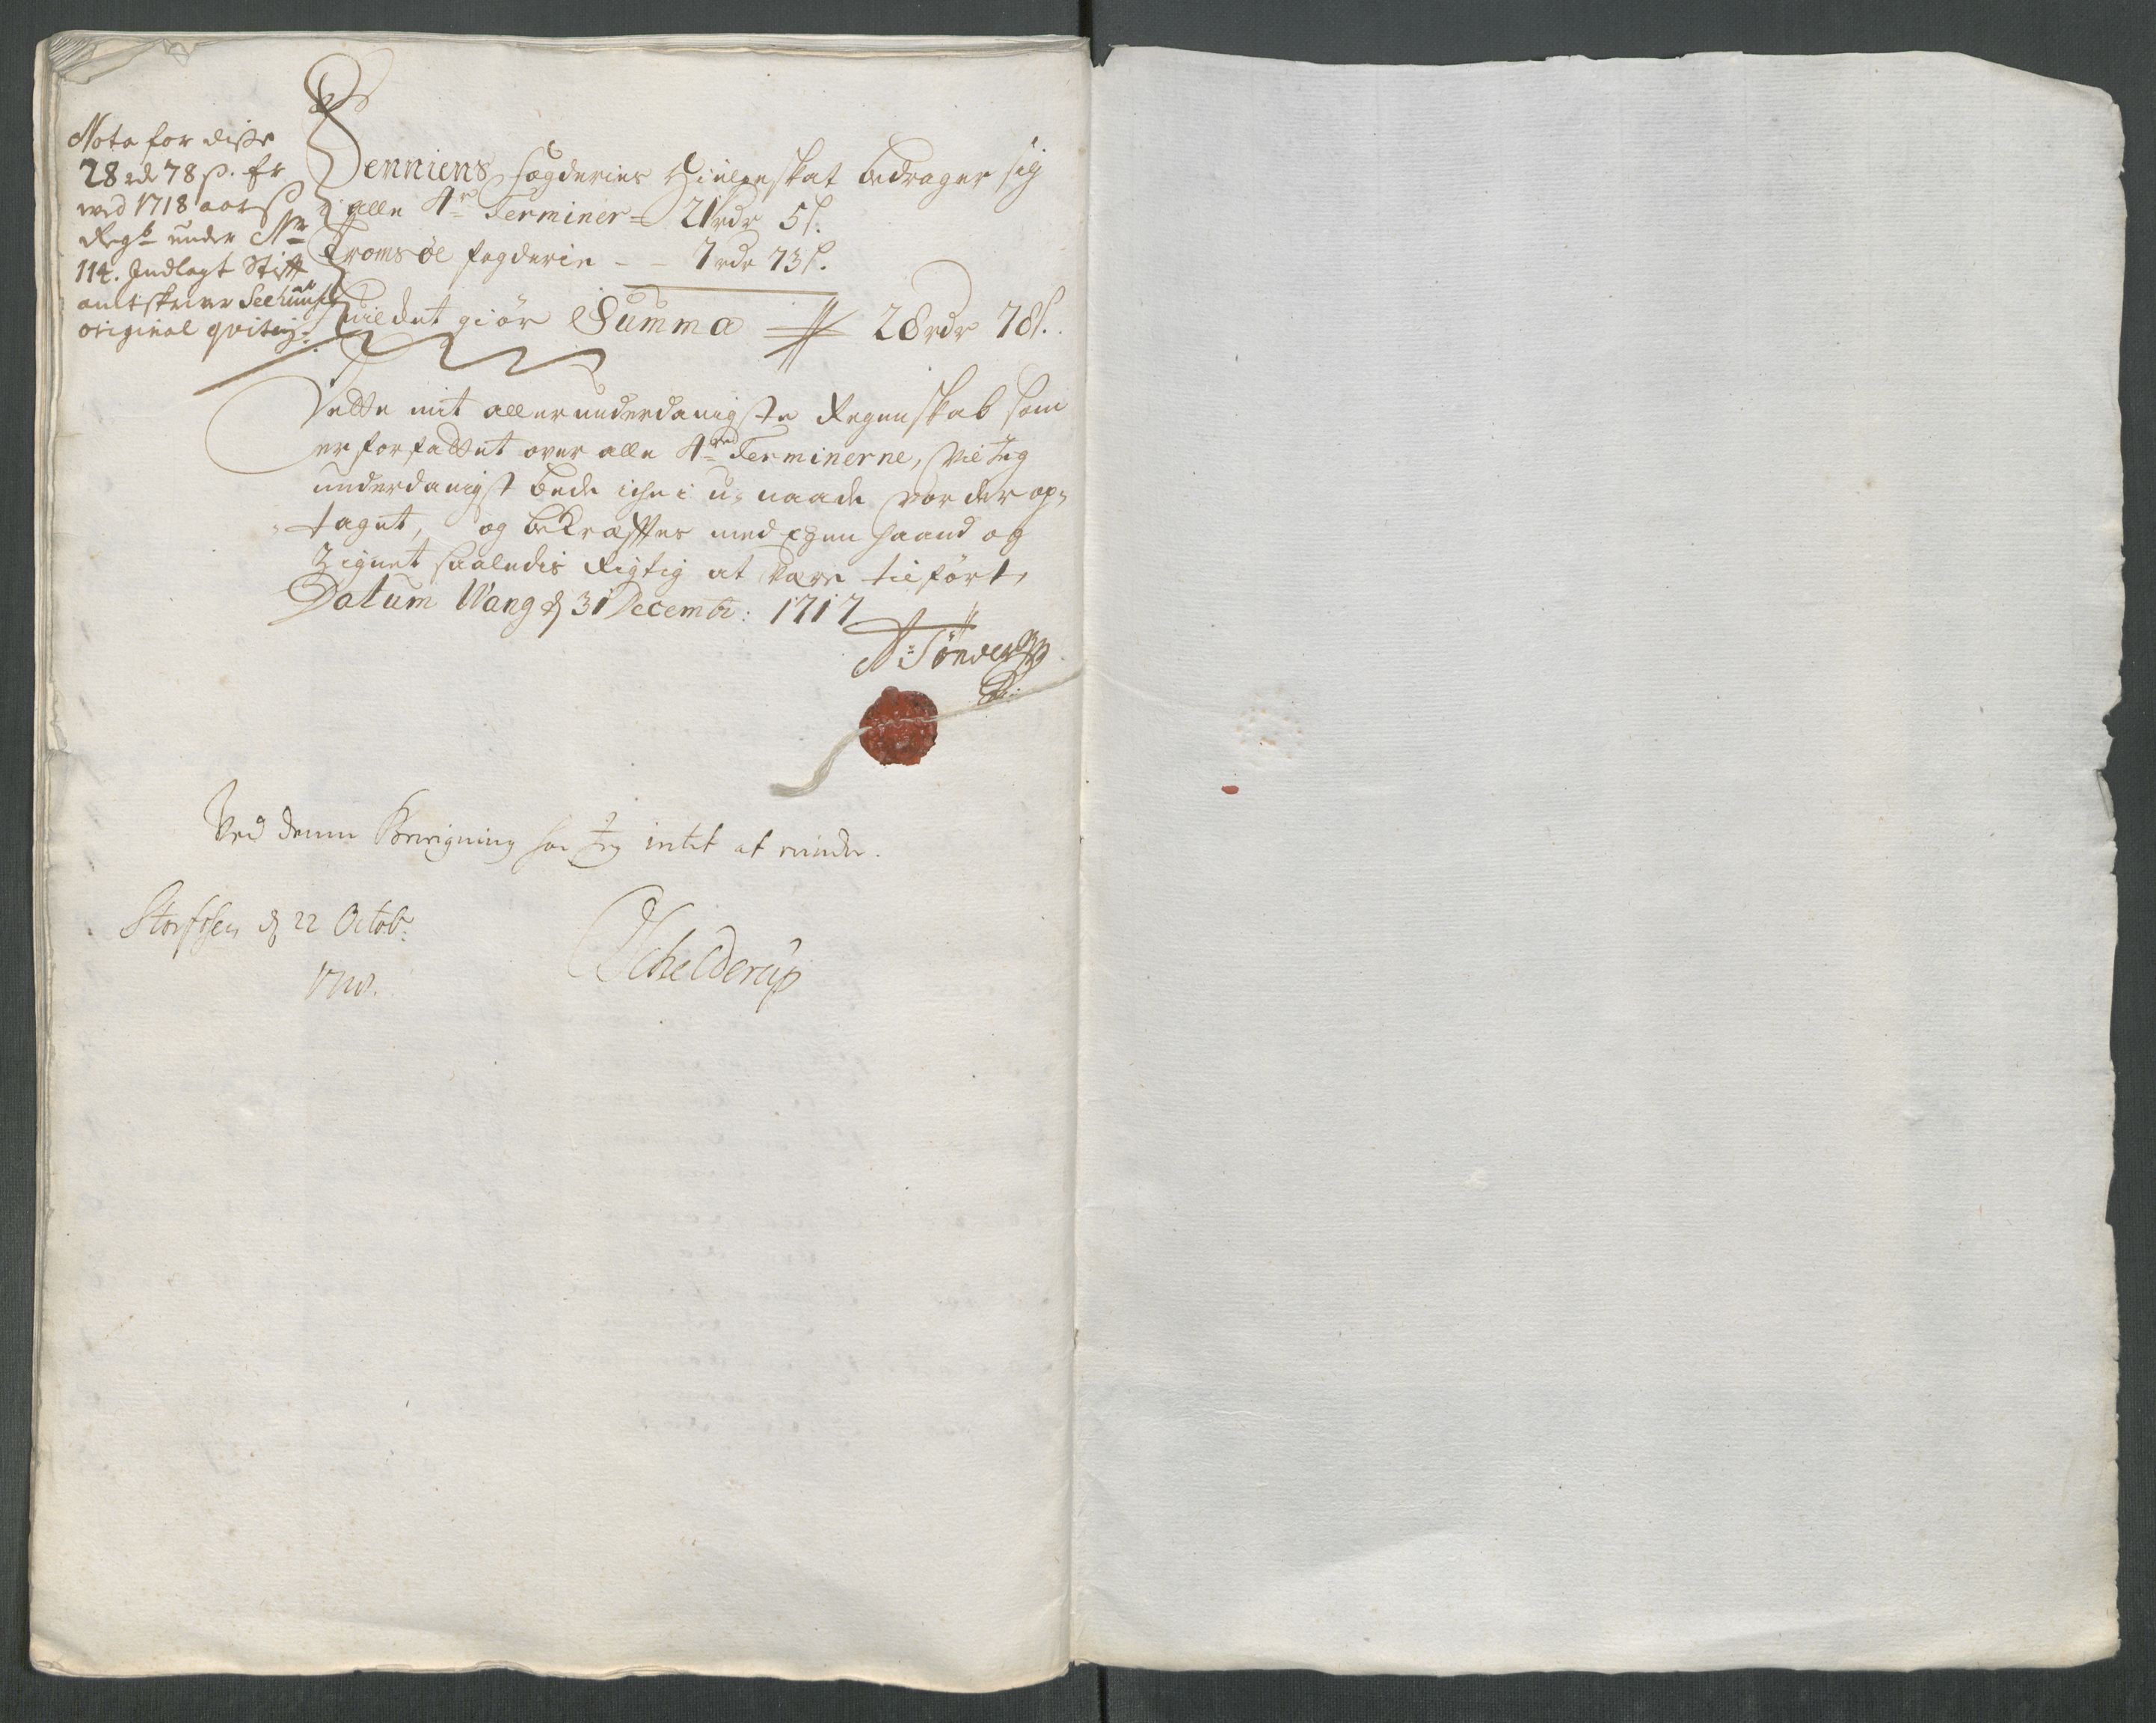 Nota for disse
28 rdr 78 s. Er
ved 1718 aars
Regsk under Nr
114. Indlagt Stift
amtskriver Seehuus
original qvitering.
Senniens fogderies Hielpeskat bedrager sig
alle 4re Terminer = 21 rdr 5 s.
Tromsøe fogderie - - 7 rdr 73 s.
huilcket giør Summa 28 rdr 78 s.
Dette mit allerunderdanigste Regenskab som
er forfattet over alle 4re Terminerne, vil Jeg
underdanigst bede iche i u-naade vorder op-
taget, og bekræfftes med egen haand og
Zignet saaledis Rigtig at være tilført,
Datum Wang d 31 Decembr: 1717
A: Tønder
Ved denne Beregning har Jeg intet at minde.
d 22 Octobr.
1718.
Schelderup